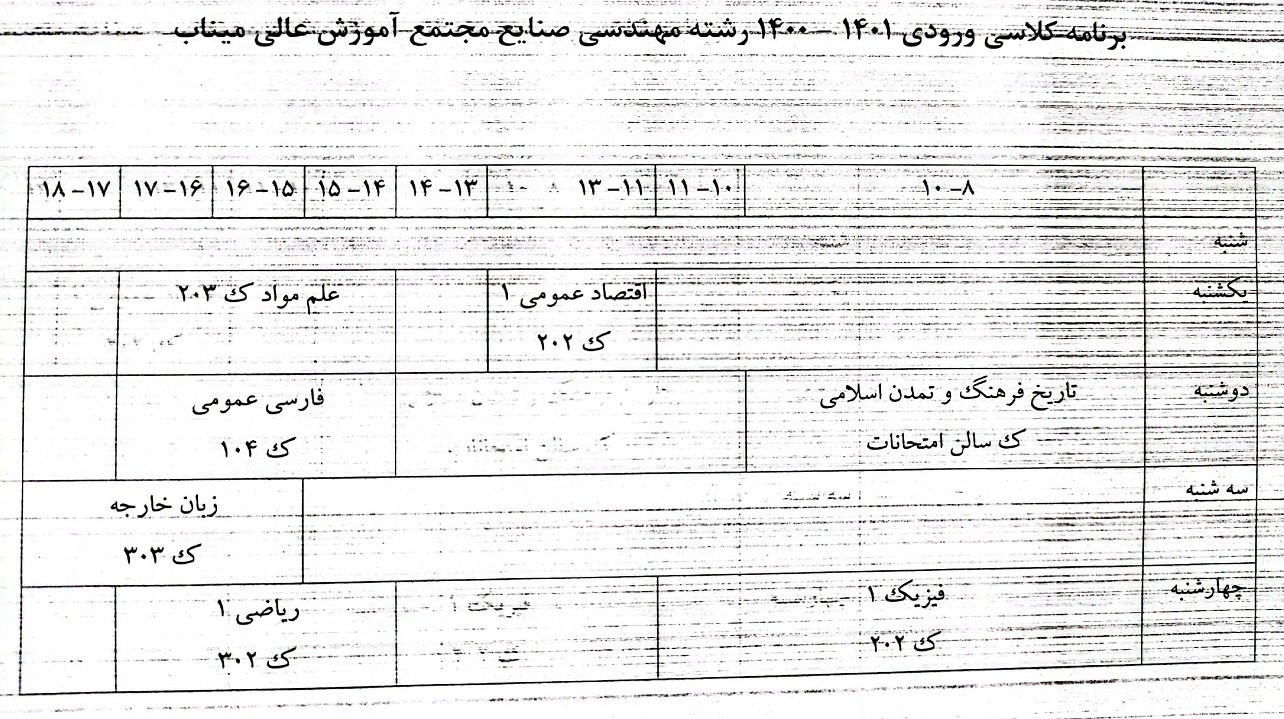 برنامه کلاسی ورودی ۱۴۰۱ – ۱۴۰۰ رشته مهندسی صنایع مجتمع آموزش عالی میناب
۸–۱۰ ۱۰–۱۱ ۱۱–۱۳ ۱۳–۱۴ ۱۴–۱۵ ۱۵–۱۶ ۱۶–۱۷ ۱۷–۱۸
شنبه
یکشنبه اقتصاد عمومی ۱ علم مواد ک ۲۰۳
ک ۲۰۲
دوشنبه تاریخ فرهنگ و تمدن اسلامی فارسی عمومی
ک سالن امتحانات ک ۱۰۴
سه شنبه زبان خارجه
ک ۳۰۳
چهارشنبه فیزیک ۱ ریاضی ۱
ک ۲۰۲ ک ۳۰۲